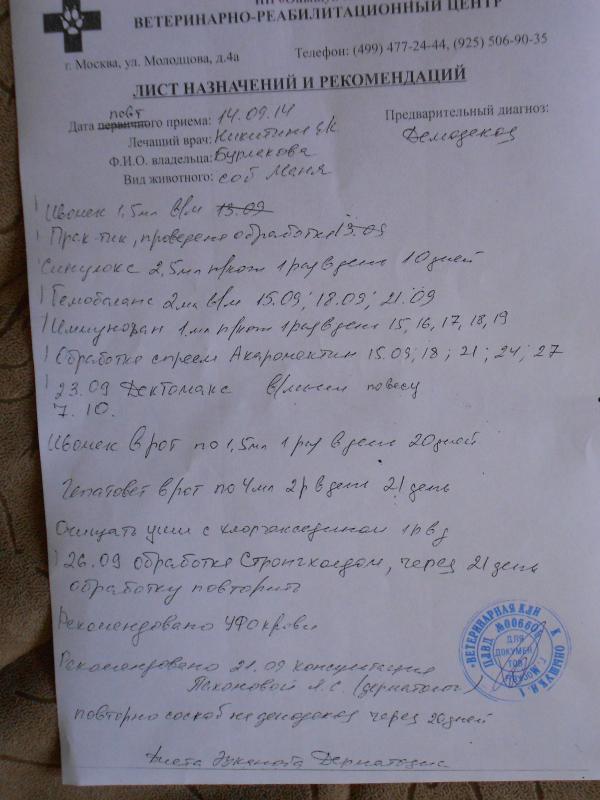 ВЕТЕРИНАРНО-РЕАБИЛИТАЦИОННЫЙ ЦЕНТР
г. Москва, ул. Молодцова, д.4а
Телефон: (499) 477-24-44, (925) 506-90-35
ЛИСТ НАЗНАЧЕНИЙ И РЕКОМЕНДАЦИЙ
повт
Дата первичного приема: 14.09.14
Предварительный диагноз:
Лечащий врач: Никитина Е.К.
Демодекоз
Ф.И.О. владельца: Бурлакова
Вид животного: соб Маня
Ивомек 1,5мл в/м 13.09
Прак-тик, проведена обработка 13.09
Синулокс 2,5мл п/кож 1 раз в день 10 дней
Гемобаланс 2мл в/м 15.09; 18.09; 21.09
Иммуноран 1мл п/кож 1 раз в день 15, 16, 17, 18, 19
Обработка спреем Акаромектин 15.09; 18; 21; 24; 27
23.09 Дектомакс в/мыш по весу
7.10.
Ивомек в рот по 1,5мл 1 раз в день 20 дней
Гепатовет в рот по 4мл 2р в день 21 день
Очищать уши с хлоргексидином 1 р в д
26.09 обработка Стронгхолдом, через 21 день
обработку повторить
Рекомендовано УФО крови
Рекомендовано 21.09 консультация
Пахоновой Л.С. (дерматолог)
повторно соскоб на демодекоз через 20 дней
Диета Эукануба Дерматозис
ВЕТЕРИНАРНАЯ КЛИ
№006606
ДЛЯ
ДОКУМЕН
ТОВ